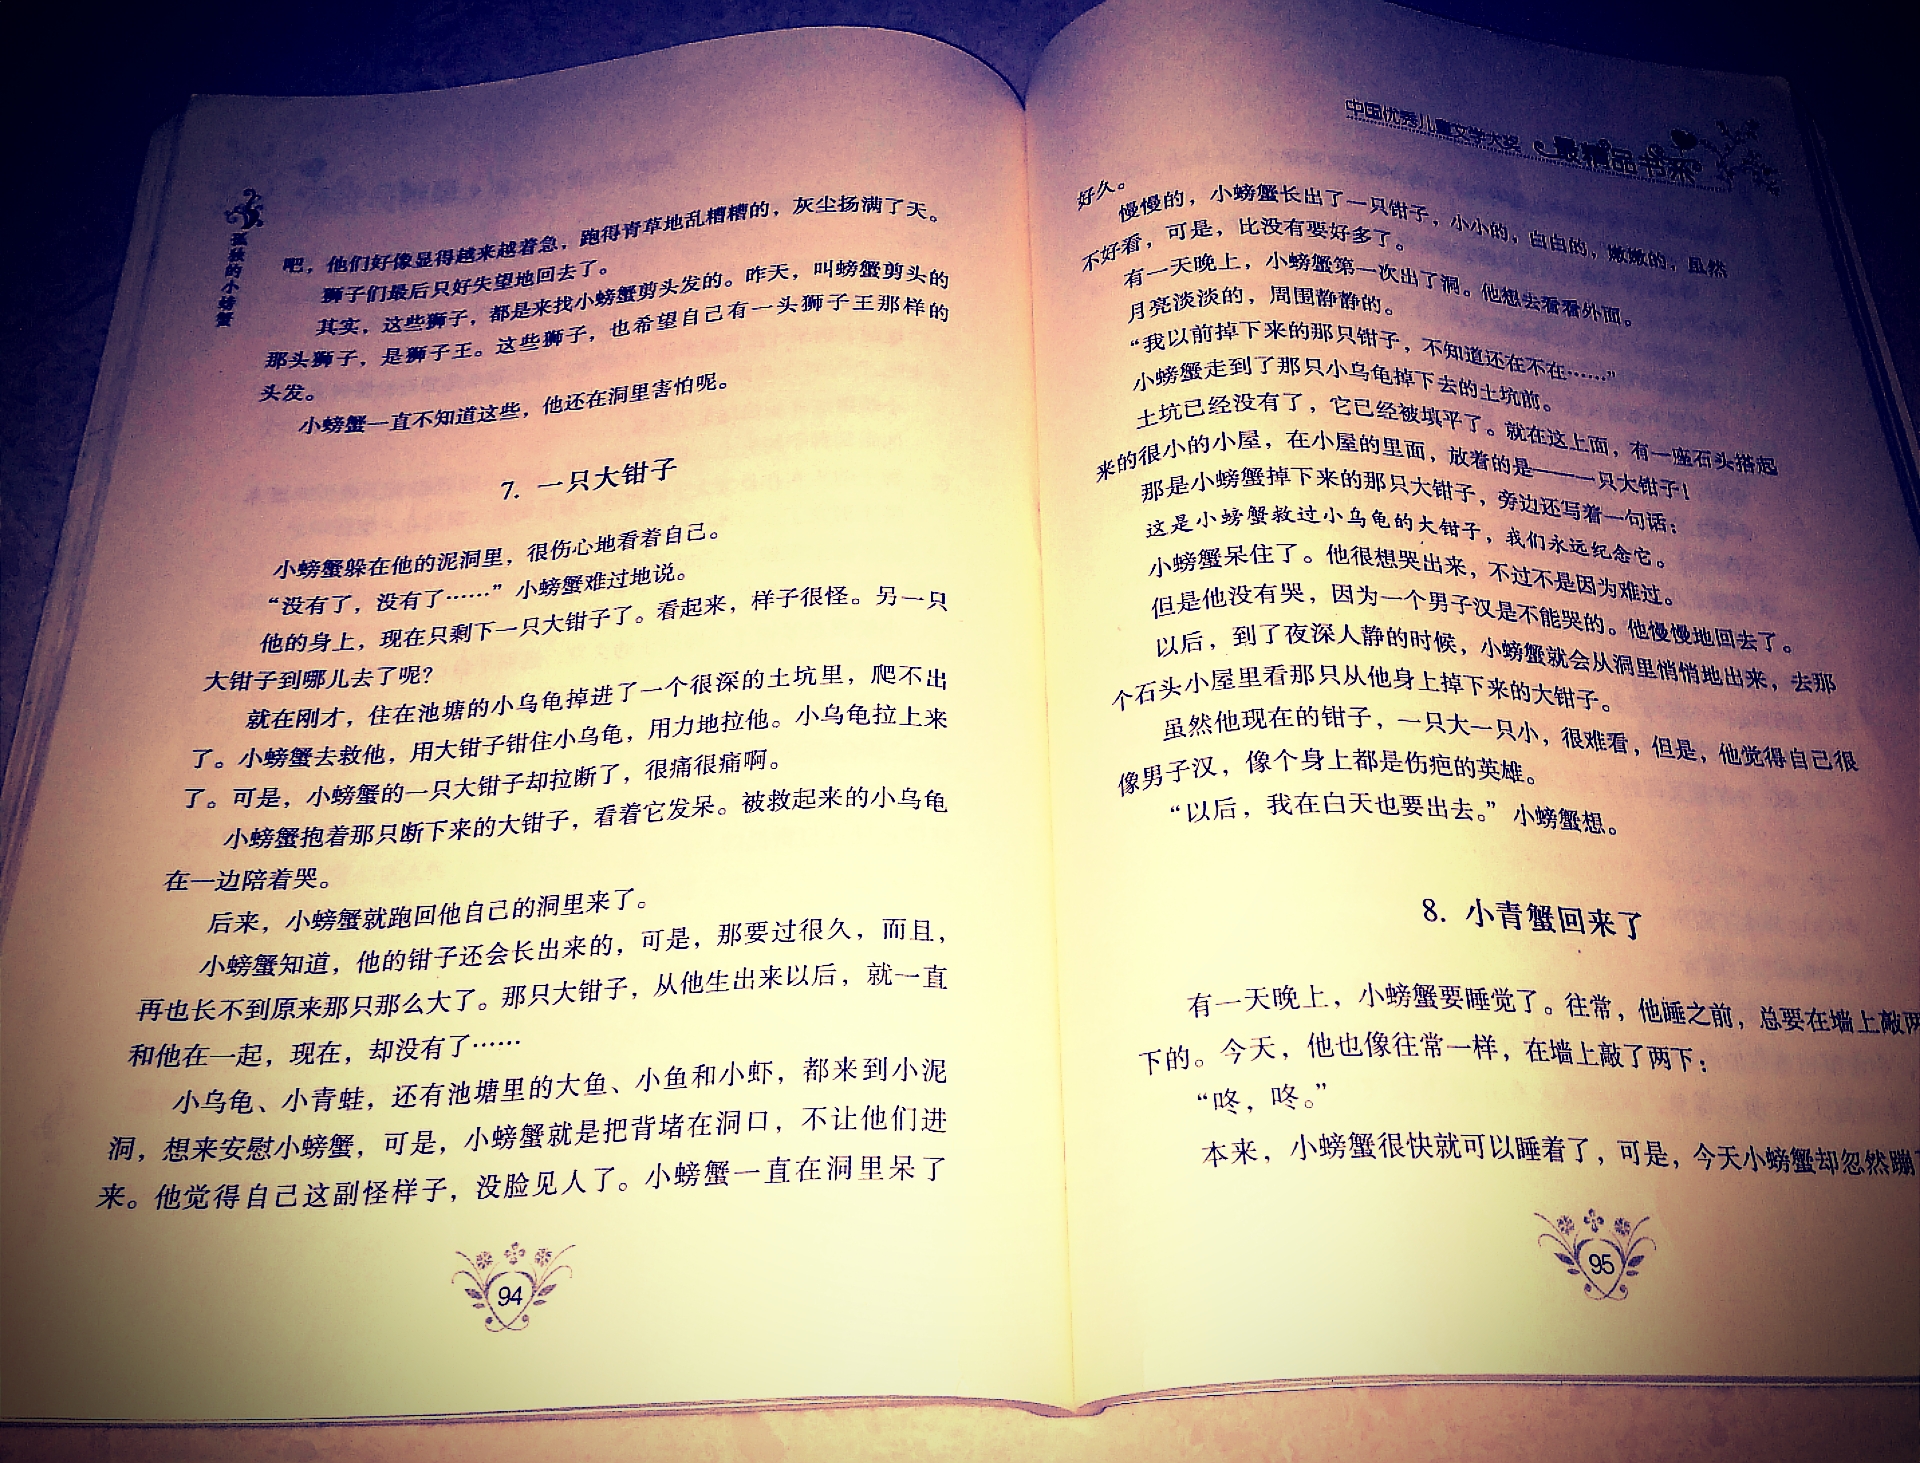 孤独的小螃蟹
吧，他们好像显得越来越着急，跑得青草地乱糟糟的，灰尘扬满了天。
狮子们最后只好失望地回去了。
其实，这些狮子，都是来找小螃蟹剪头发的。昨天，叫螃蟹剪头的
那头狮子，是狮子王。这些狮子，也希望自己有一头狮子王那样的
头发。
小螃蟹一直不知道这些，他还在洞里害怕呢。
7. 一只大钳子
小螃蟹躲在他的泥洞里，很伤心地看着自己。
“没有了，没有了……”小螃蟹难过地说。
他的身上，现在只剩下一只大钳子了。看起来，样子很怪。另一只
大钳子到哪儿去了呢？
就在刚才，住在池塘的小乌龟掉进了一个很深的土坑里，爬不出
了。小螃蟹去救他，用大钳子钳住小乌龟，用力地拉他。小乌龟拉上来
了。可是，小螃蟹的一只大钳子却拉断了，很痛很痛啊。
小螃蟹抱着那只断下来的大钳子，看着它发呆。被救起来的小乌龟
在一边陪着哭。
后来，小螃蟹就跑回他自己的洞里来了。
小螃蟹知道，他的钳子还会长出来的，可是，那要过很久，而且，
再也长不到原来那只那么大了。那只大钳子，从他生出来以后，就一直
和他在一起，现在，却没有了……
小乌龟、小青蛙，还有池塘里的大鱼、小鱼和小虾，都来到小泥
洞，想来安慰小螃蟹，可是，小螃蟹就是把背堵在洞口，不让他们进
来。他觉得自己这副怪样子，没脸见人了。小螃蟹一直在洞里呆了
94
中国优秀儿童文学大奖 最精品书系
好久。
慢慢的，小螃蟹长出了一只钳子，小小的，白白的，嫩嫩的，虽然
不好看，可是，比没有要好多了。
有一天晚上，小螃蟹第一次出了洞。他想去看看外面。
月亮淡淡的，周围静静的。
“我以前掉下来的那只钳子，不知道还在不在……”
小螃蟹走到了那只小乌龟掉下去的土坑前。
土坑已经没有了，它已经被填平了。就在这上面，有一座石头搭起
来的很小的小屋，在小屋的里面，放着的是——一只大钳子！
那是小螃蟹掉下来的那只大钳子，旁边还写着一句话：
这是小螃蟹救过小乌龟的大钳子，我们永远纪念它。
小螃蟹呆住了。他很想哭出来，不过不是因为难过。
但是他没有哭，因为一个男子汉是不能哭的。他慢慢地回去了。
以后，到了夜深人静的时候，小螃蟹就会从洞里悄悄地出来，去那
个石头小屋里看那只从他身上掉下来的大钳子。
虽然他现在的钳子，一只大一只小，很难看，但是，他觉得自己很
像男子汉，像个身上都是伤疤的英雄。
“以后，我在白天也要出去。”小螃蟹想。
8. 小青蟹回来了
有一天晚上，小螃蟹要睡觉了。往常，他睡之前，总要在墙上敲两
下的。今天，他也像往常一样，在墙上敲了两下：
“咚，咚。”
本来，小螃蟹很快就可以睡着了，可是，今天小螃蟹却忽然蹦
95